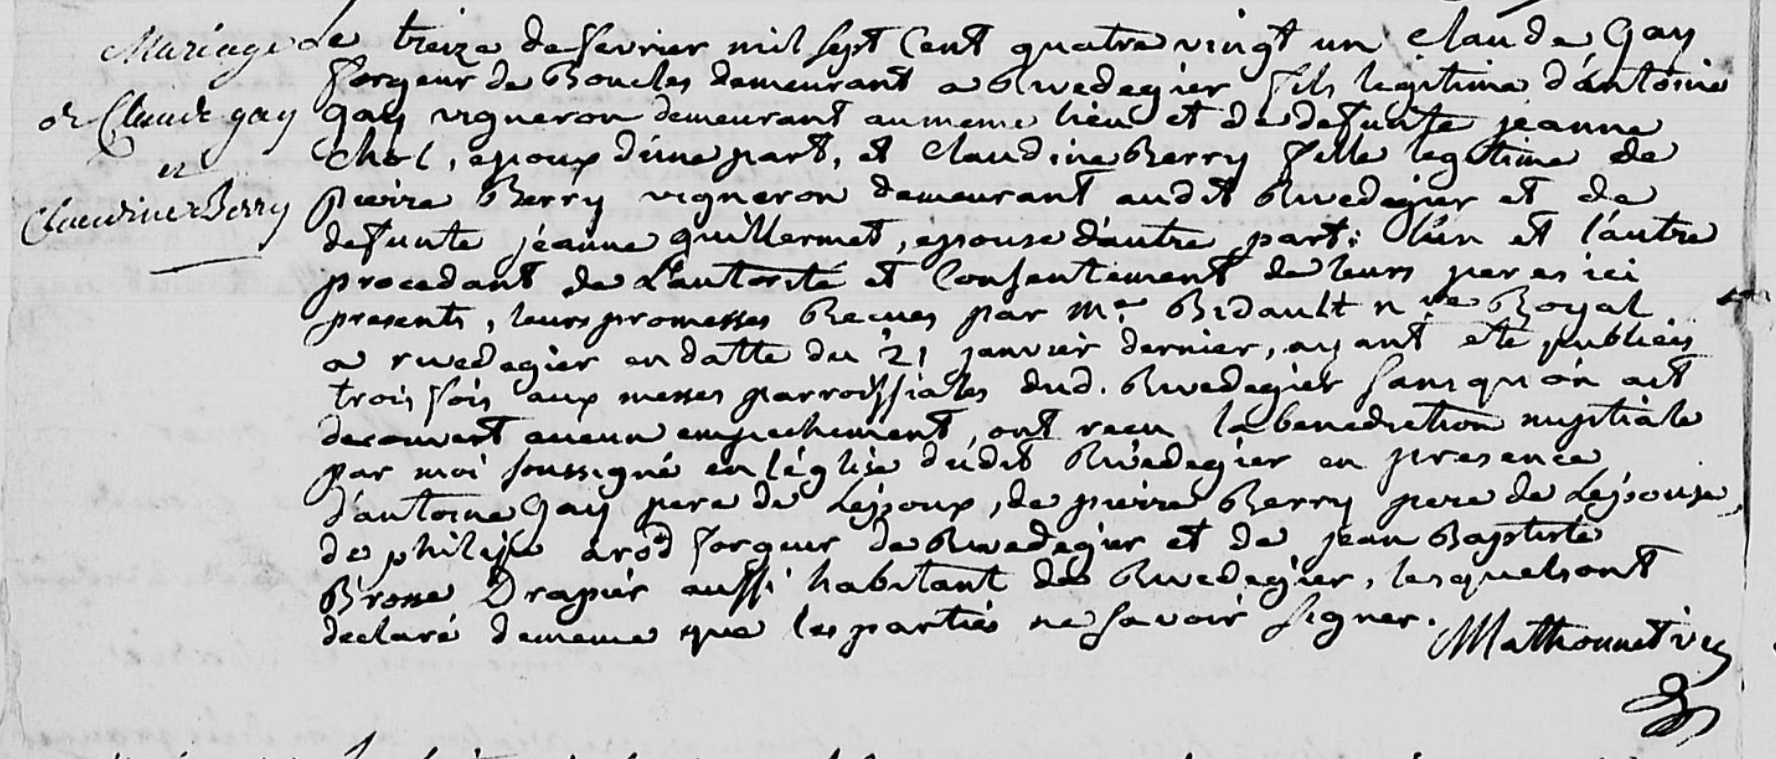 Mariage
de Claude gay
et
Claudine Berry
Le treize de fevrier mil sept Cent quatre vingt un Claude Gay
forgeur de Boucles demeurant a Rivedegier fils legitime d'antoine
Gay vigneron demeurant au meme lieu et de defunte jeanne
Chol, epoux d'une part, et Claudine Berry fille legitime de
pierre Berry vigneron demeurant audit Rivedegier et de
defunte jeanne guillermet, epouse d'autre part: l'un et l'autre
procedant de L'autorité et Consentement de leurs peres ici
presents, leurs promesses Recues par me Bidault nre Royal
a rivedegier en datte du 21 janvier dernier, ayant eté publiées
trois fois aux messes parroissiales dud. Rivedegier sans qu'on ait
decouvert aucun empechement, ont recu la benediction nuptiale
par moi soussigné en l'église dudit Rivedegier en presence
d'antoine Gay pere de Lepoux, de pierre Berry pere de Lepouse,
de philipe arod forgeur de Rivedegier et de jean Baptiste
Brosse Drapier aussi habitant de Rivedegier, lesquels ont
declaré de meme que les parties ne savoir signer.
Mathonnet vic